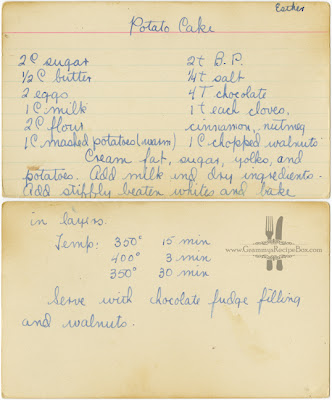 Esther
Potato Cake
2 C sugar 2 t B.P.
½ C butter ¼ t salt
2 eggs 4 T chocolate
1 C milk 1 t each cloves,
2 C flour cinnamon, nutmeg
1 C mashed potatoes (warm) 1 C chopped walnuts
Cream fat, sugar, yolks, and
potatoes. Add milk and dry ingredients.
Add stiffly beaten whites and bake
in layers.
Temp: 300° 15 min
400° 3 min
350° 30 min
www.GrannysRecipeBox.com
Serve with chocolate fudge filling
and walnuts.